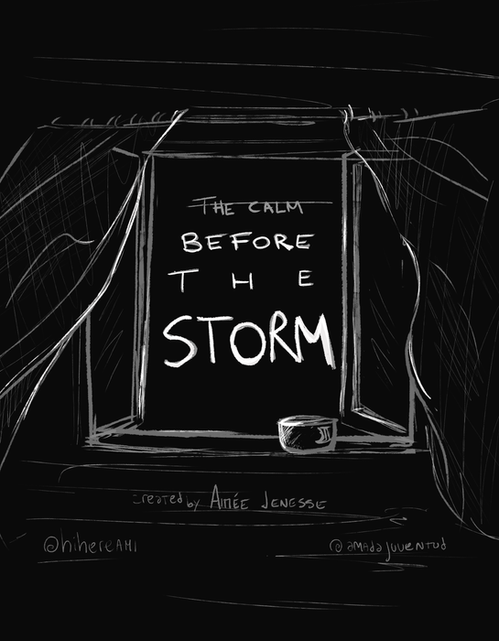 THE CALM
BEFORE
THE
STORM
created by AIMÉE JENESSE
@hihereAMI
@amadajuventud